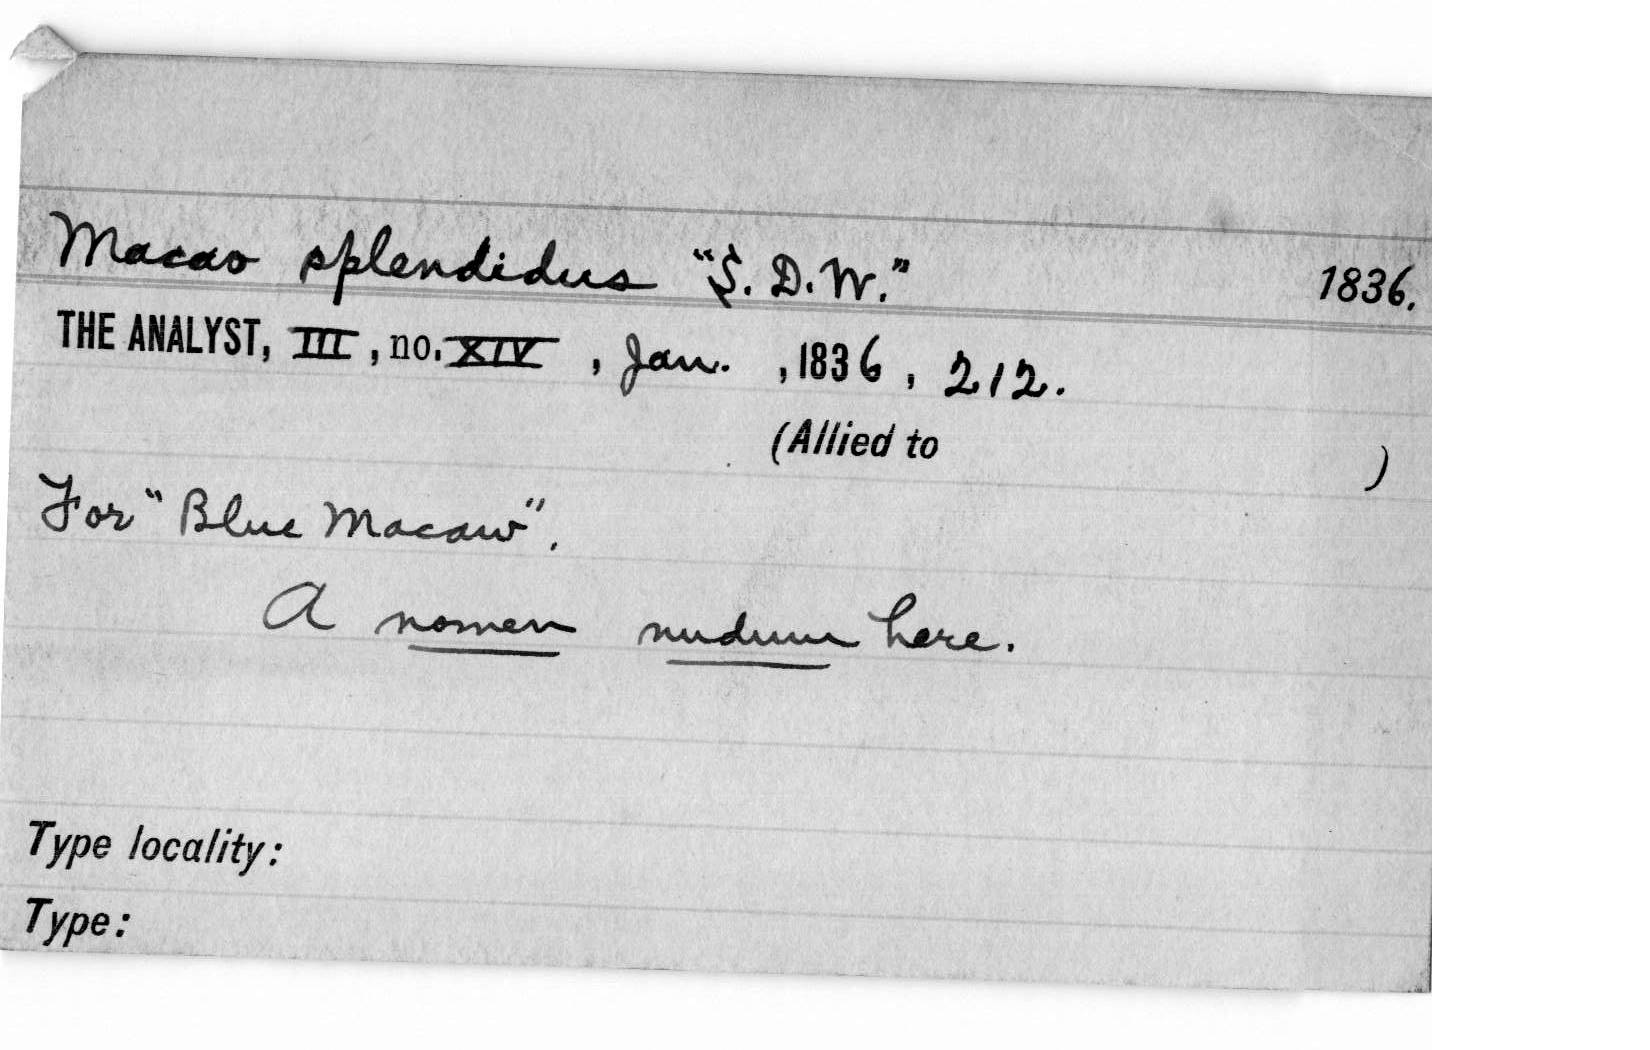 Macao splendidus "S. D. W." 1836.
THE ANALYST, III, no. XIV, Jan. , 1836, 212.
(Allied to )
For "Blue Macaw".
A nomen nudum here.
Type locality:
Type: